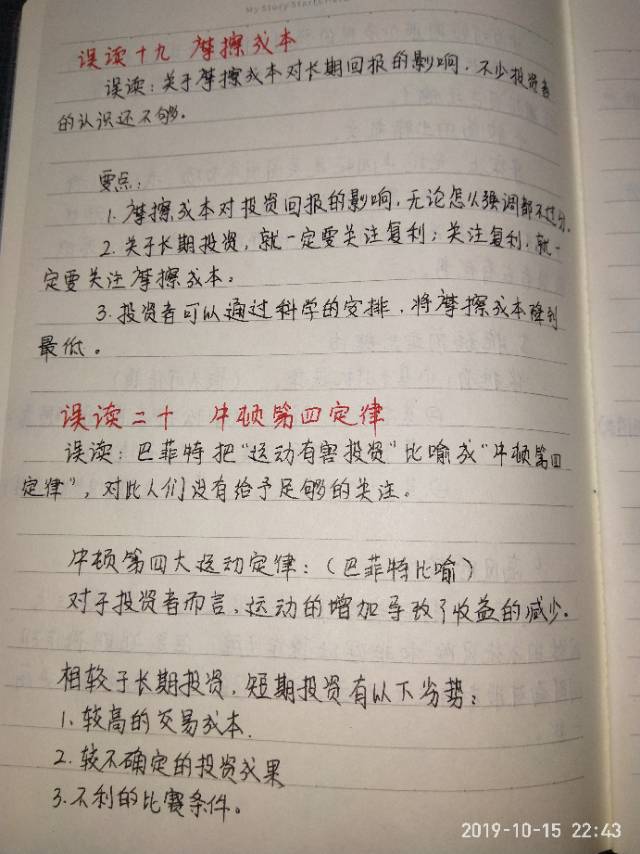 My Story Starts Here
误读十九 摩擦成本
误读:关于摩擦成本对长期回报的影响,不少投资者
的认识还不够。
要点:
1. 摩擦成本对投资回报的影响,无论怎么强调都不过分。
2. 关于长期投资,就一定要关注复利;关注复利,就一
定要关注摩擦成本。
3. 投资者可以通过科学的安排,将摩擦成本降到
最低。
误读二十 牛顿第四定律
误读:巴菲特把“运动有害投资”比喻成“牛顿第四
定律”,对此人们没有给予足够的关注。
牛顿第四大运动定律:(巴菲特比喻)
对于投资者而言,运动的增加导致了收益的减少。
相较于长期投资,短期投资有以下劣势:
1. 较高的交易成本.
2. 较不确定的投资成果
3. 不利的比赛条件。
2019-10-15 22:43